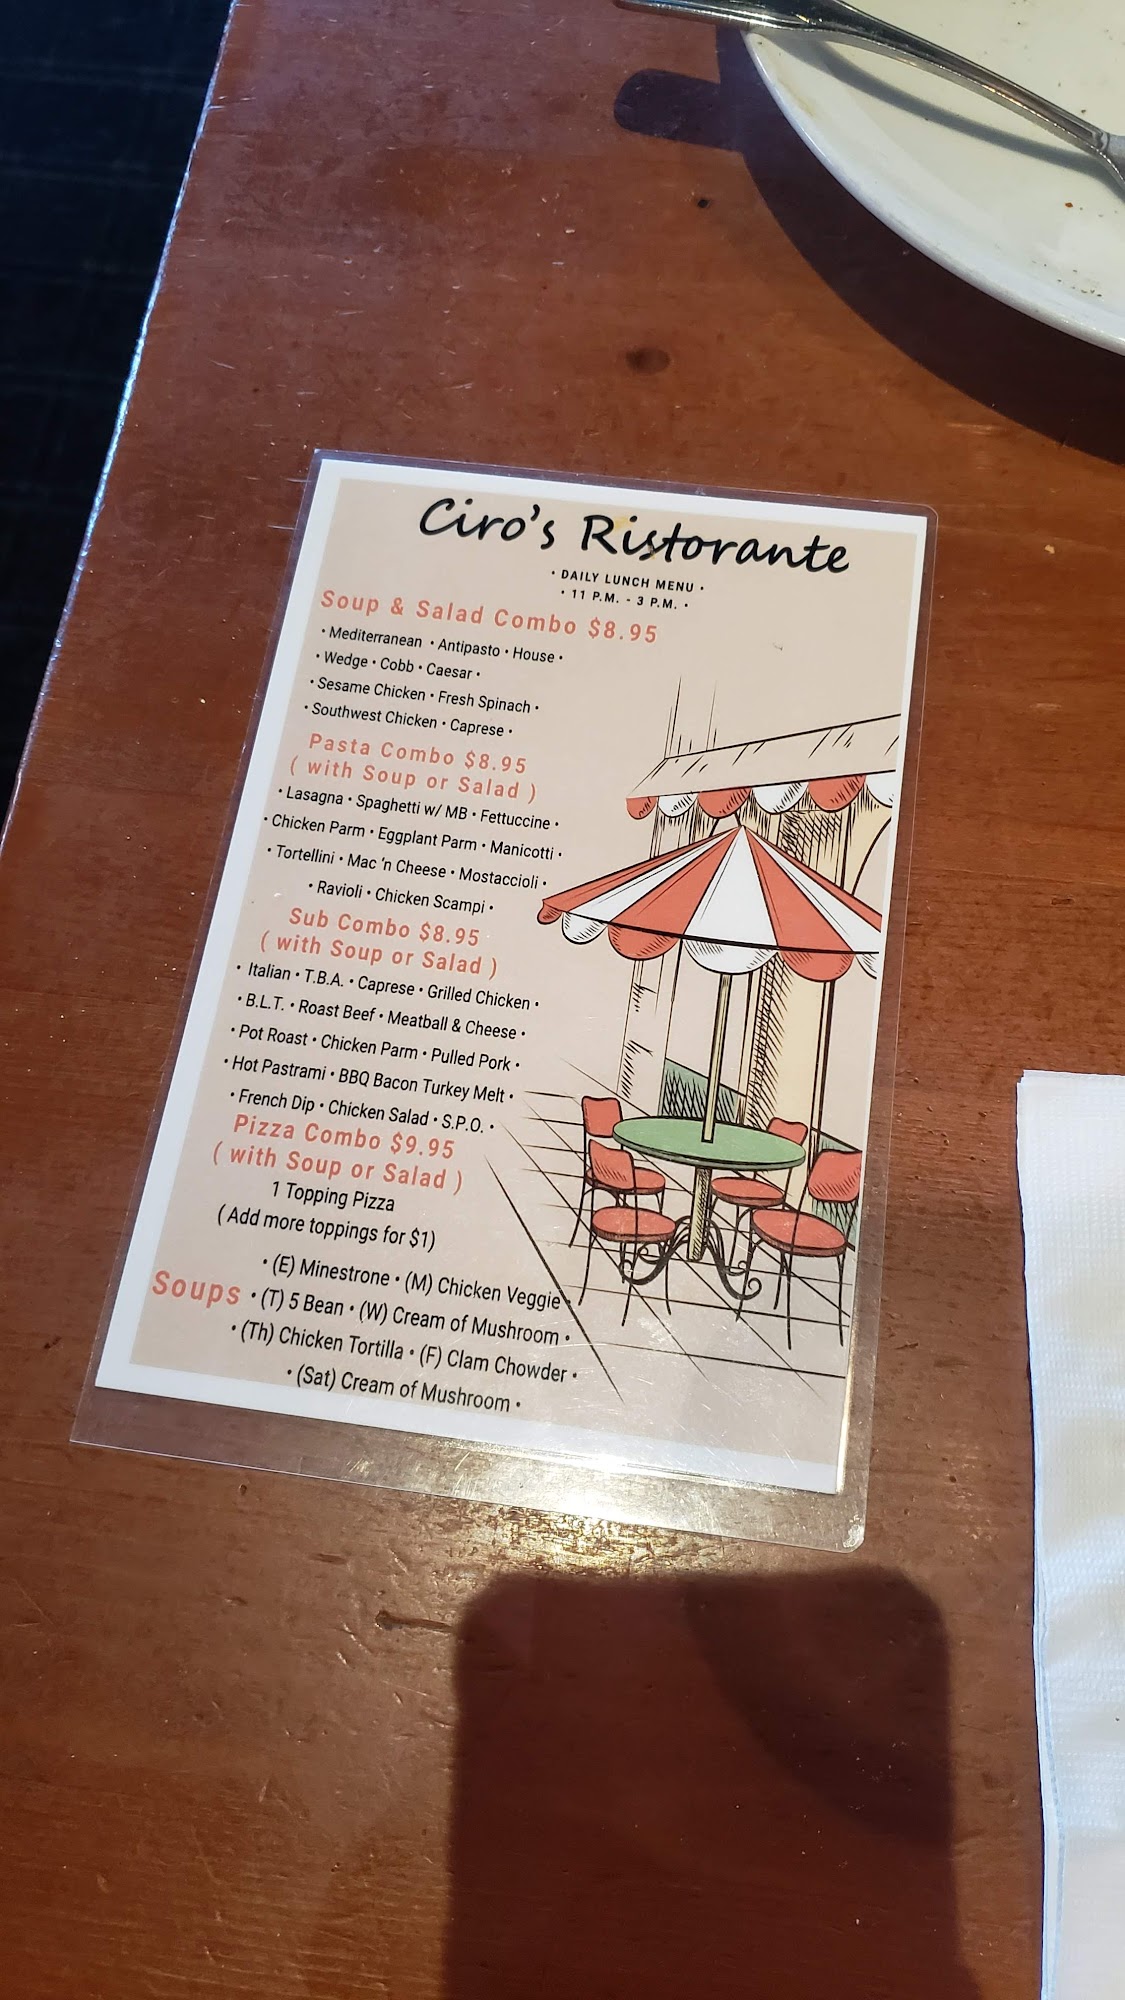 Ciro's Ristorante
• DAILY LUNCH MENU •
• 11 P.M. - 3 P.M. •
Soup & Salad Combo $8.95
• Mediterranean • Antipasto • House •
• Wedge • Cobb • Caesar •
• Sesame Chicken • Fresh Spinach •
• Southwest Chicken • Caprese •
Pasta Combo $8.95
( with Soup or Salad )
• Lasagna • Spaghetti w/ MB • Fettuccine •
• Chicken Parm • Eggplant Parm • Manicotti •
• Tortellini • Mac 'n Cheese • Mostaccioli •
• Ravioli • Chicken Scampi •
Sub Combo $8.95
( with Soup or Salad )
• Italian • T.B.A. • Caprese • Grilled Chicken •
• B.L.T. • Roast Beef • Meatball & Cheese •
• Pot Roast • Chicken Parm • Pulled Pork •
• Hot Pastrami • BBQ Bacon Turkey Melt •
• French Dip • Chicken Salad • S.P.O. •
Pizza Combo $9.95
( with Soup or Salad )
1 Topping Pizza
( Add more toppings for $1)
• (E) Minestrone • (M) Chicken Veggie •
Soups • (T) 5 Bean • (W) Cream of Mushroom •
• (Th) Chicken Tortilla • (F) Clam Chowder •
• (Sat) Cream of Mushroom •